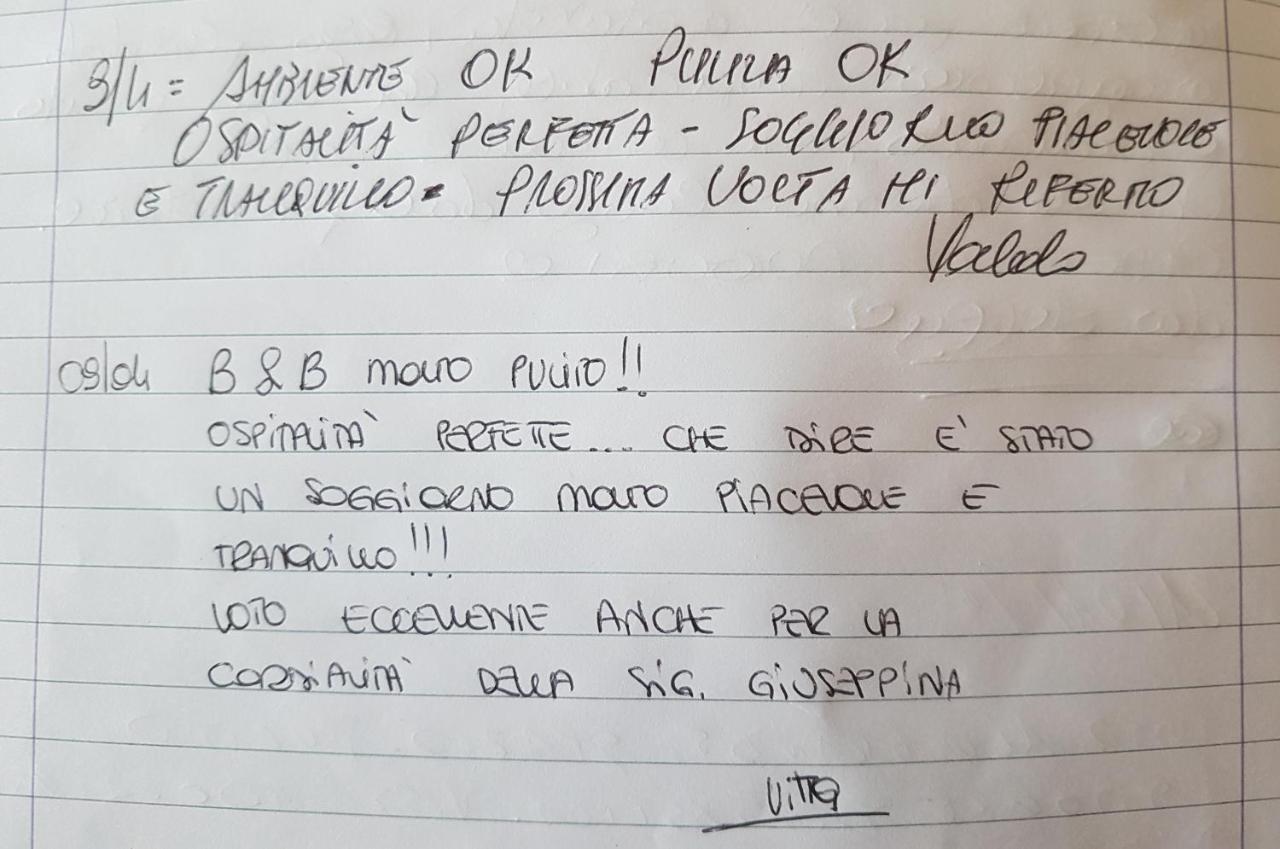 9/4 = AMBIENTE OK PULIZIA OK
OSPITALITÀ PERFETTA - SOGGIORNO PIACEVOLE
E TRANQUILLO - PROSSIMA VOLTA MI RIFERMO
09/04 B & B MOLTO PULITO!!
OSPITALITÀ PERFETTE.... CHE DIRE E' STATO
UN SOGGIORNO MOLTO PIACEVOLE E
TRANQUILLO!!!
VOTO ECCELLENTE ANCHE PER LA
CORDIALITÀ DELLA SIG. GIUSEPPINA